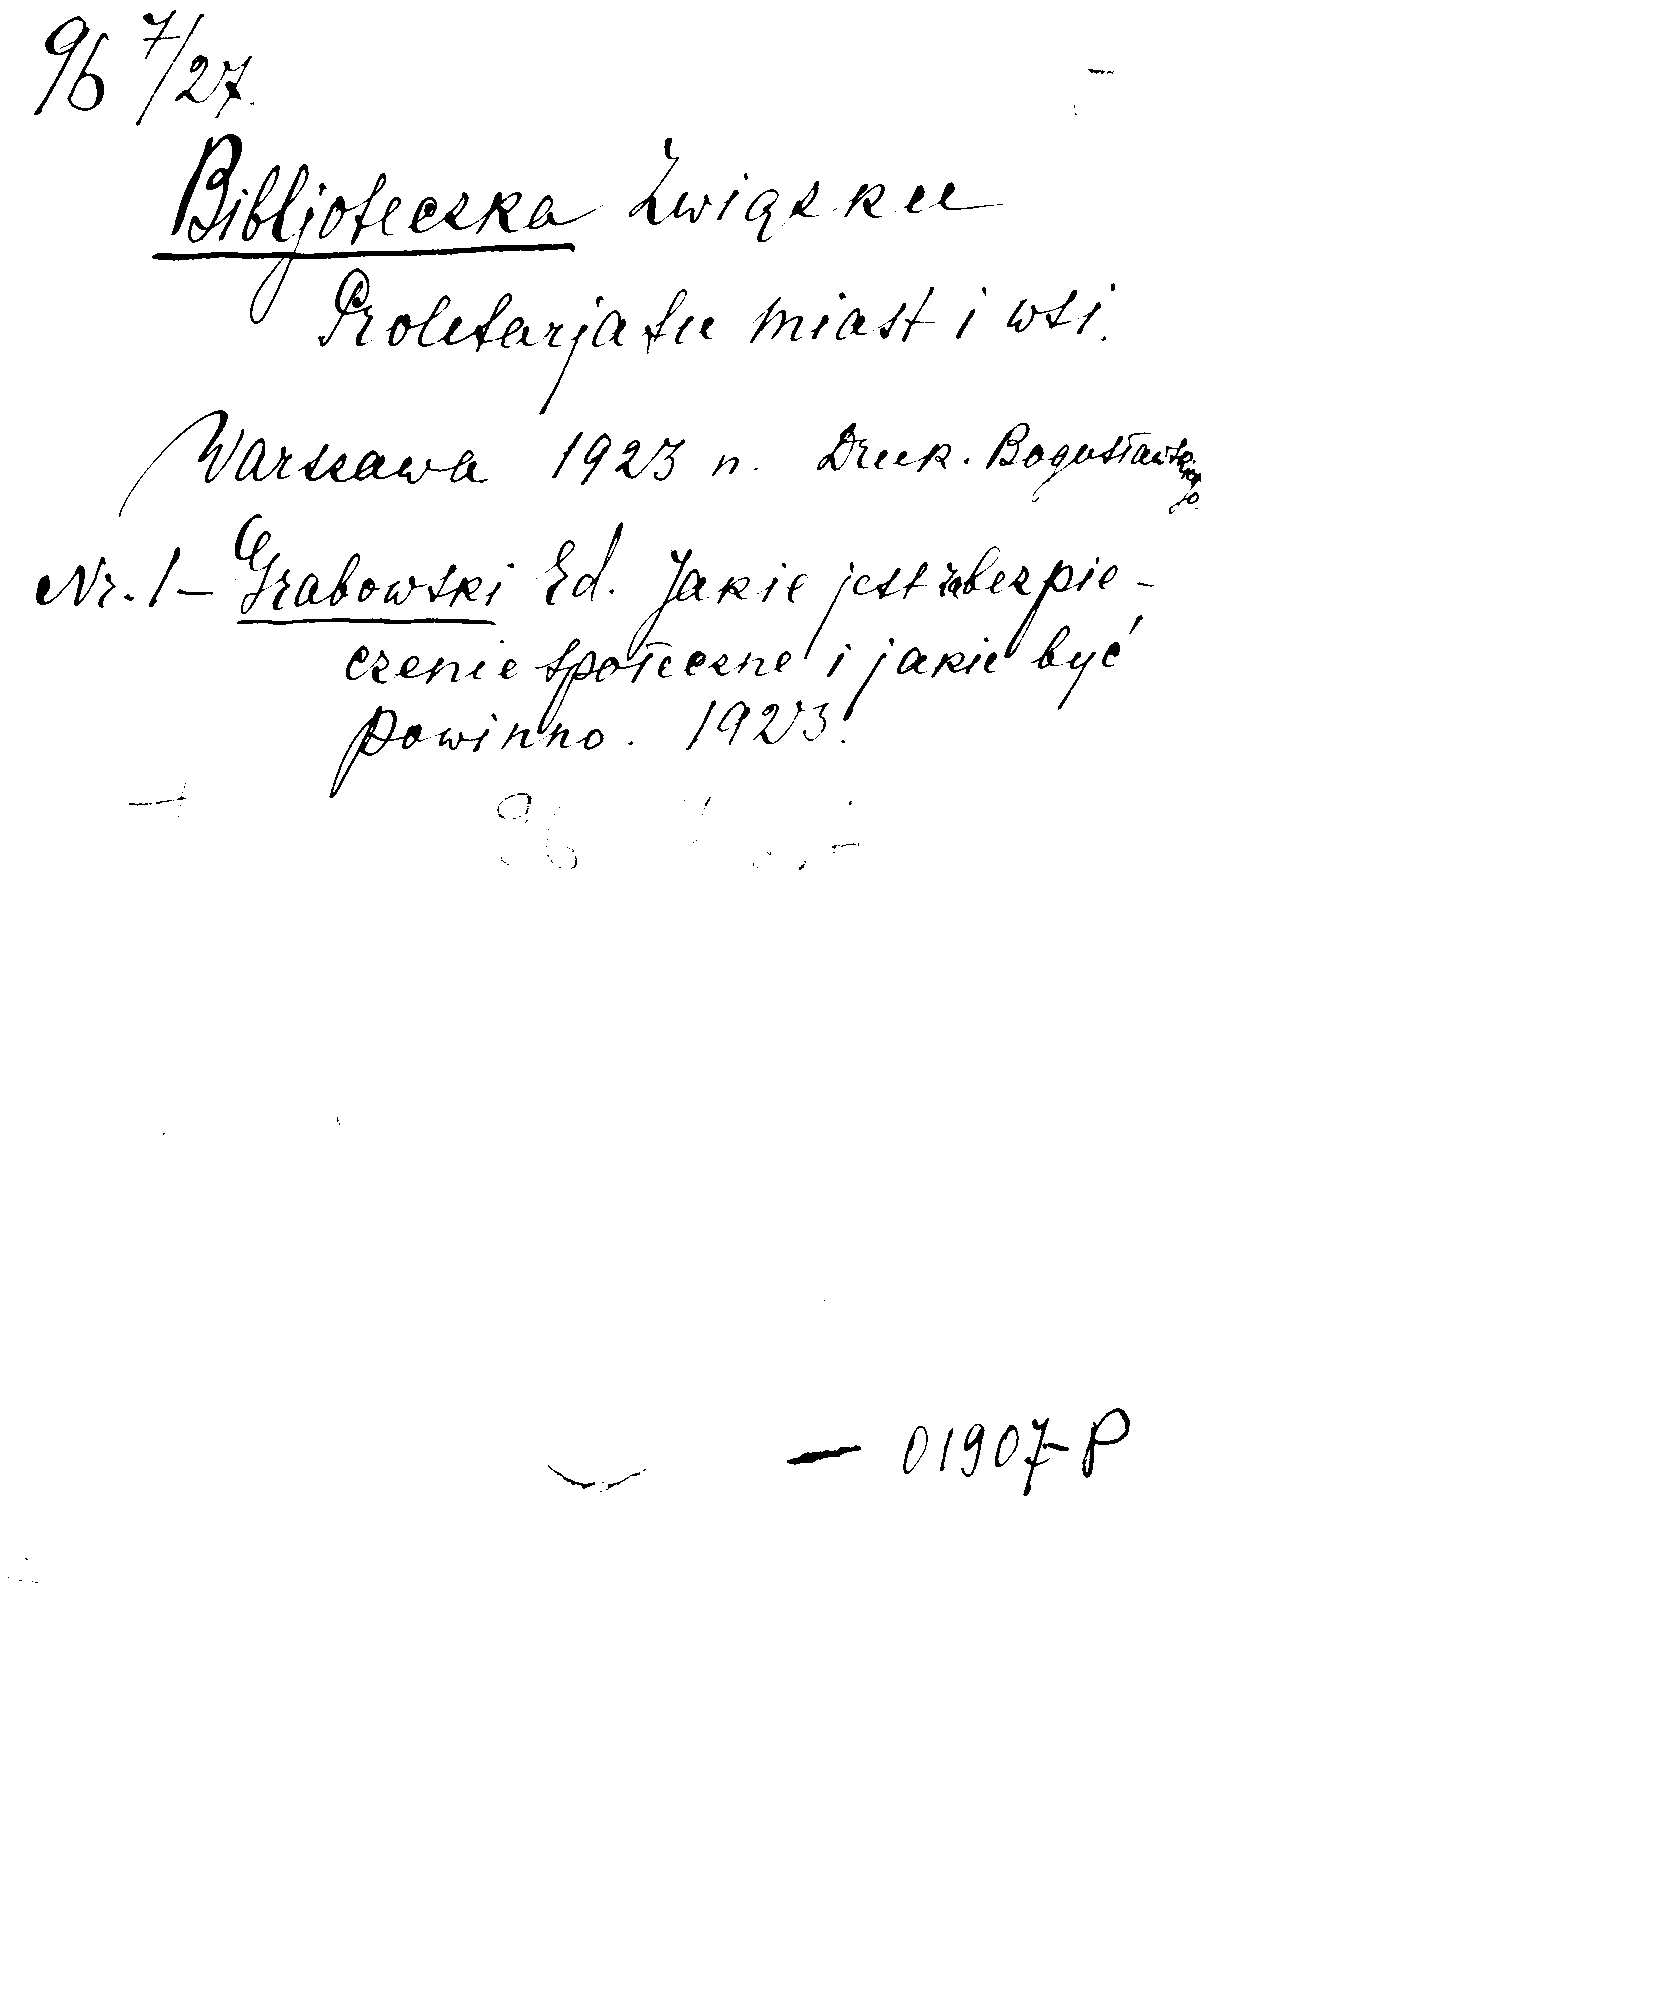 96 7/27.
Bibljoteczka Związku
Proletarjatu miast i wsi.
Warszawa 1923 n. Druk. Bogusławskiego.
Nr. 1 - Grabowski Ed. Jakie jest zabezpie-
czenie społeczne i jakie być
powinno. 1923.
- 01907-P